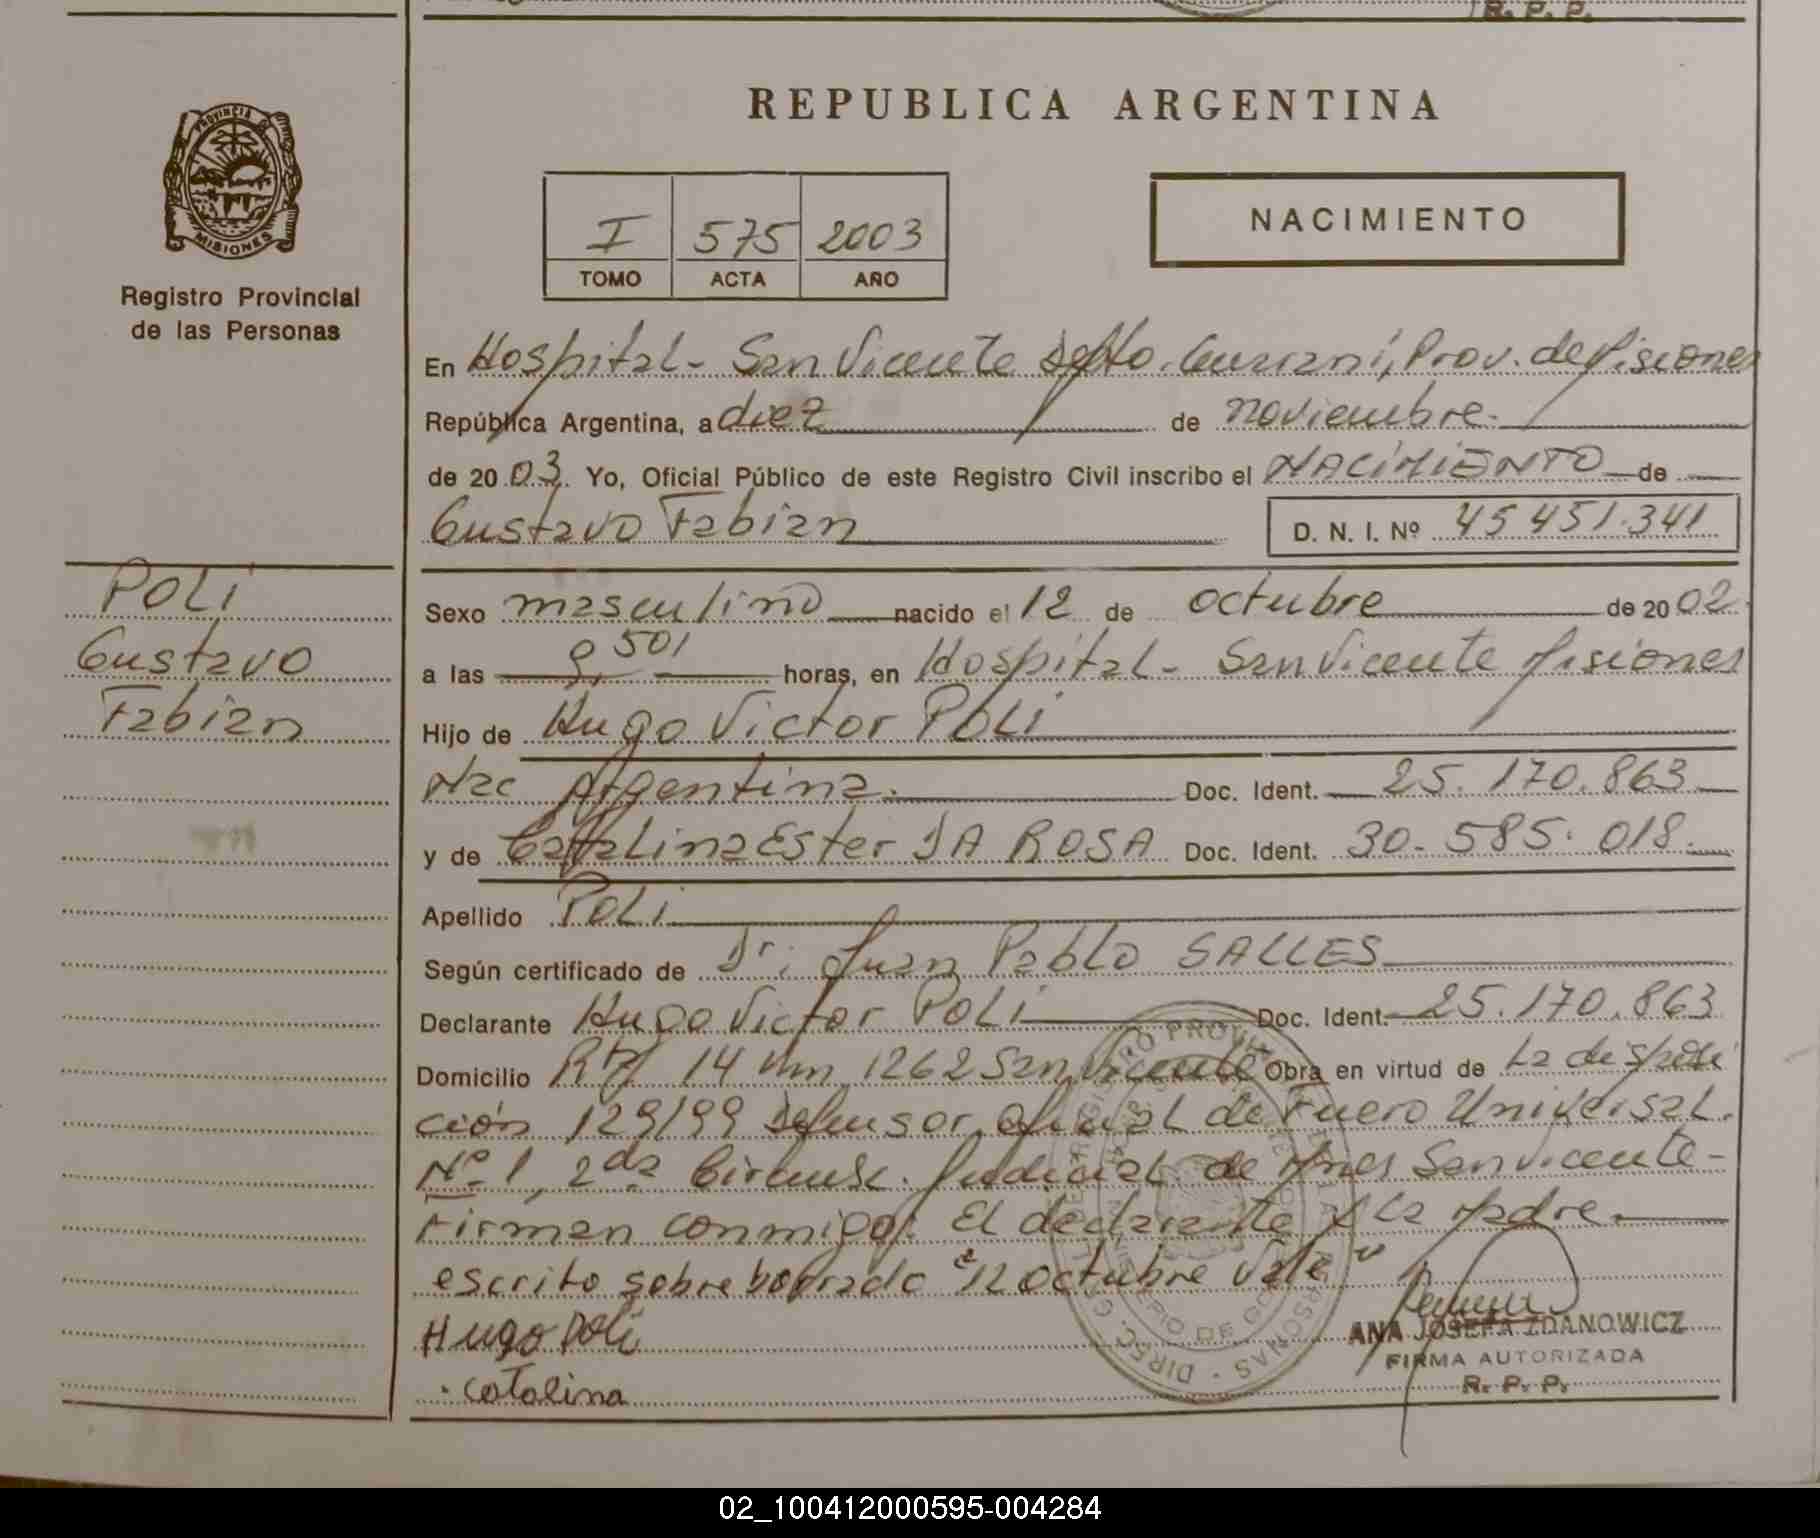 R. P. P.
REPUBLICA ARGENTINA
PROVINCIA DE
MISIONES
Registro Provincial
de las Personas
I 575 2003
TOMO ACTA AÑO
NACIMIENTO
En Hospital - San Vicente Dpto. Guaraní, Prov. de Misiones
República Argentina, a diez de noviembre.
de 2003. Yo, Oficial Público de este Registro Civil inscribo el NACIMIENTO de
Gustavo Fabian D. N. I. Nº 45451.341
POLI
Gustavo
Fabian
Sexo masculino nacido el 12 de octubre de 2002
a las 9,50 horas, en Hospital - San Vicente Misiones
Hijo de Hugo Victor POLI
Nac Argentina. Doc. Ident. 25.170.863
y de Catalina Ester DA ROSA Doc. Ident. 30-585.018
Apellido POLI
Según certificado de Dr. Juan Pablo SALLES
Declarante Hugo Victor POLI Doc. Ident. 25.170.863
Domicilio Rta 14 km 1262 San Vicente Obra en virtud de La disposi
ción 129/99 Defensor Oficial de Fuero Universal.
Nº 1, 2da Circunsc. Judicial de Mnes San Vicente -
Firman conmigo: El declarante y la Madre.
escrito sobre borrado "12 octubre Vale"
Hugo Poli
ANA JOSEFA ZDANOWICZ
FIRMA AUTORIZADA
R. P. P.
. catalina
02_100412000595-004284